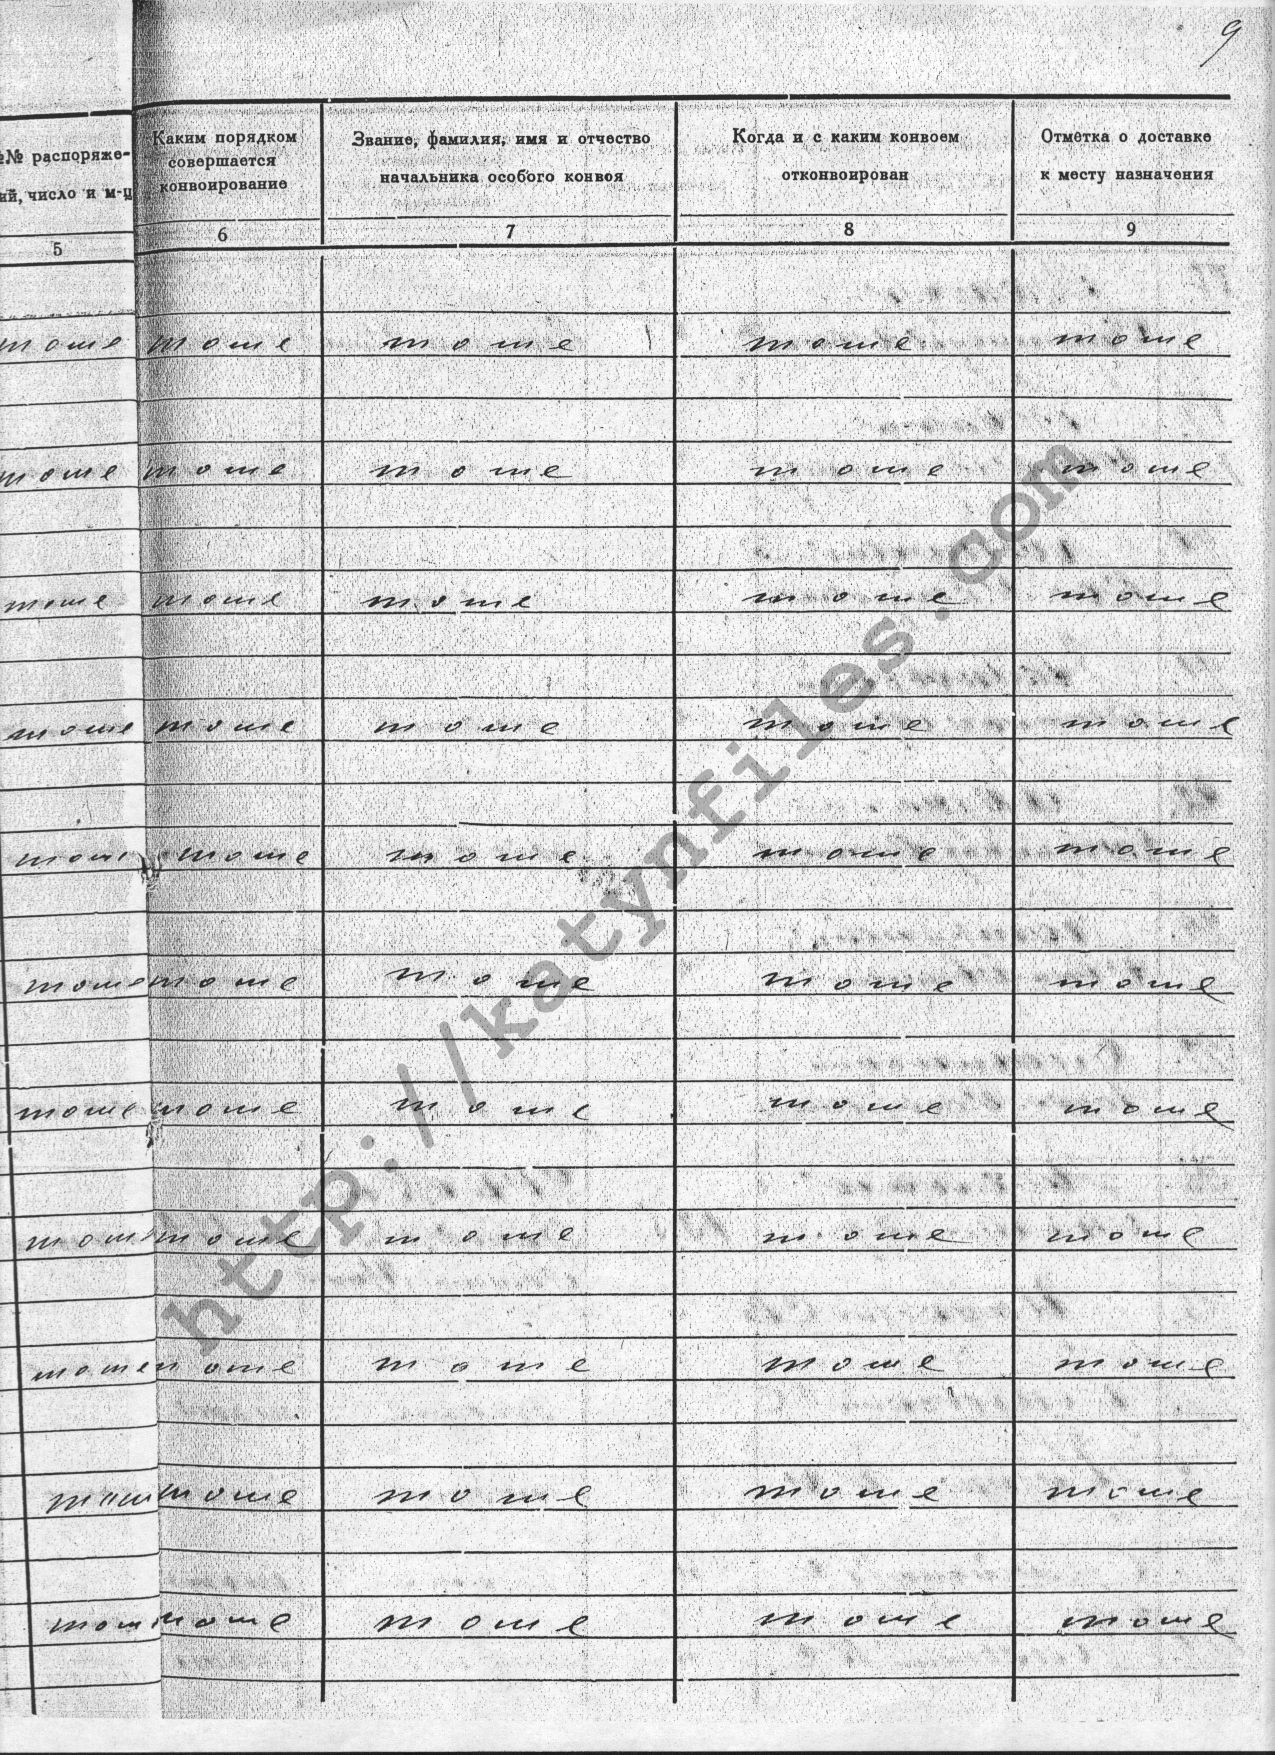 9
№№ распоряже-
ий, число и м-ц
Каким порядком
совершается
конвоирование
Звание, фамилия, имя и отчество
начальника особого конвоя
Когда и с каким конвоем
отконвоирован
Отметка о доставке
к месту назначения
5 6 7 8 9
тоже тоже тоже тоже тоже
тоже тоже тоже тоже тоже
тоже тоже тоже тоже тоже
тоже тоже тоже тоже тоже
тоже тоже тоже тоже тоже
тоже тоже тоже тоже тоже
тоже тоже тоже тоже тоже
тоже тоже тоже тоже тоже
тоже тоже тоже тоже тоже
тоже тоже тоже тоже тоже
тоже тоже тоже тоже тоже
http://katynfiles.com